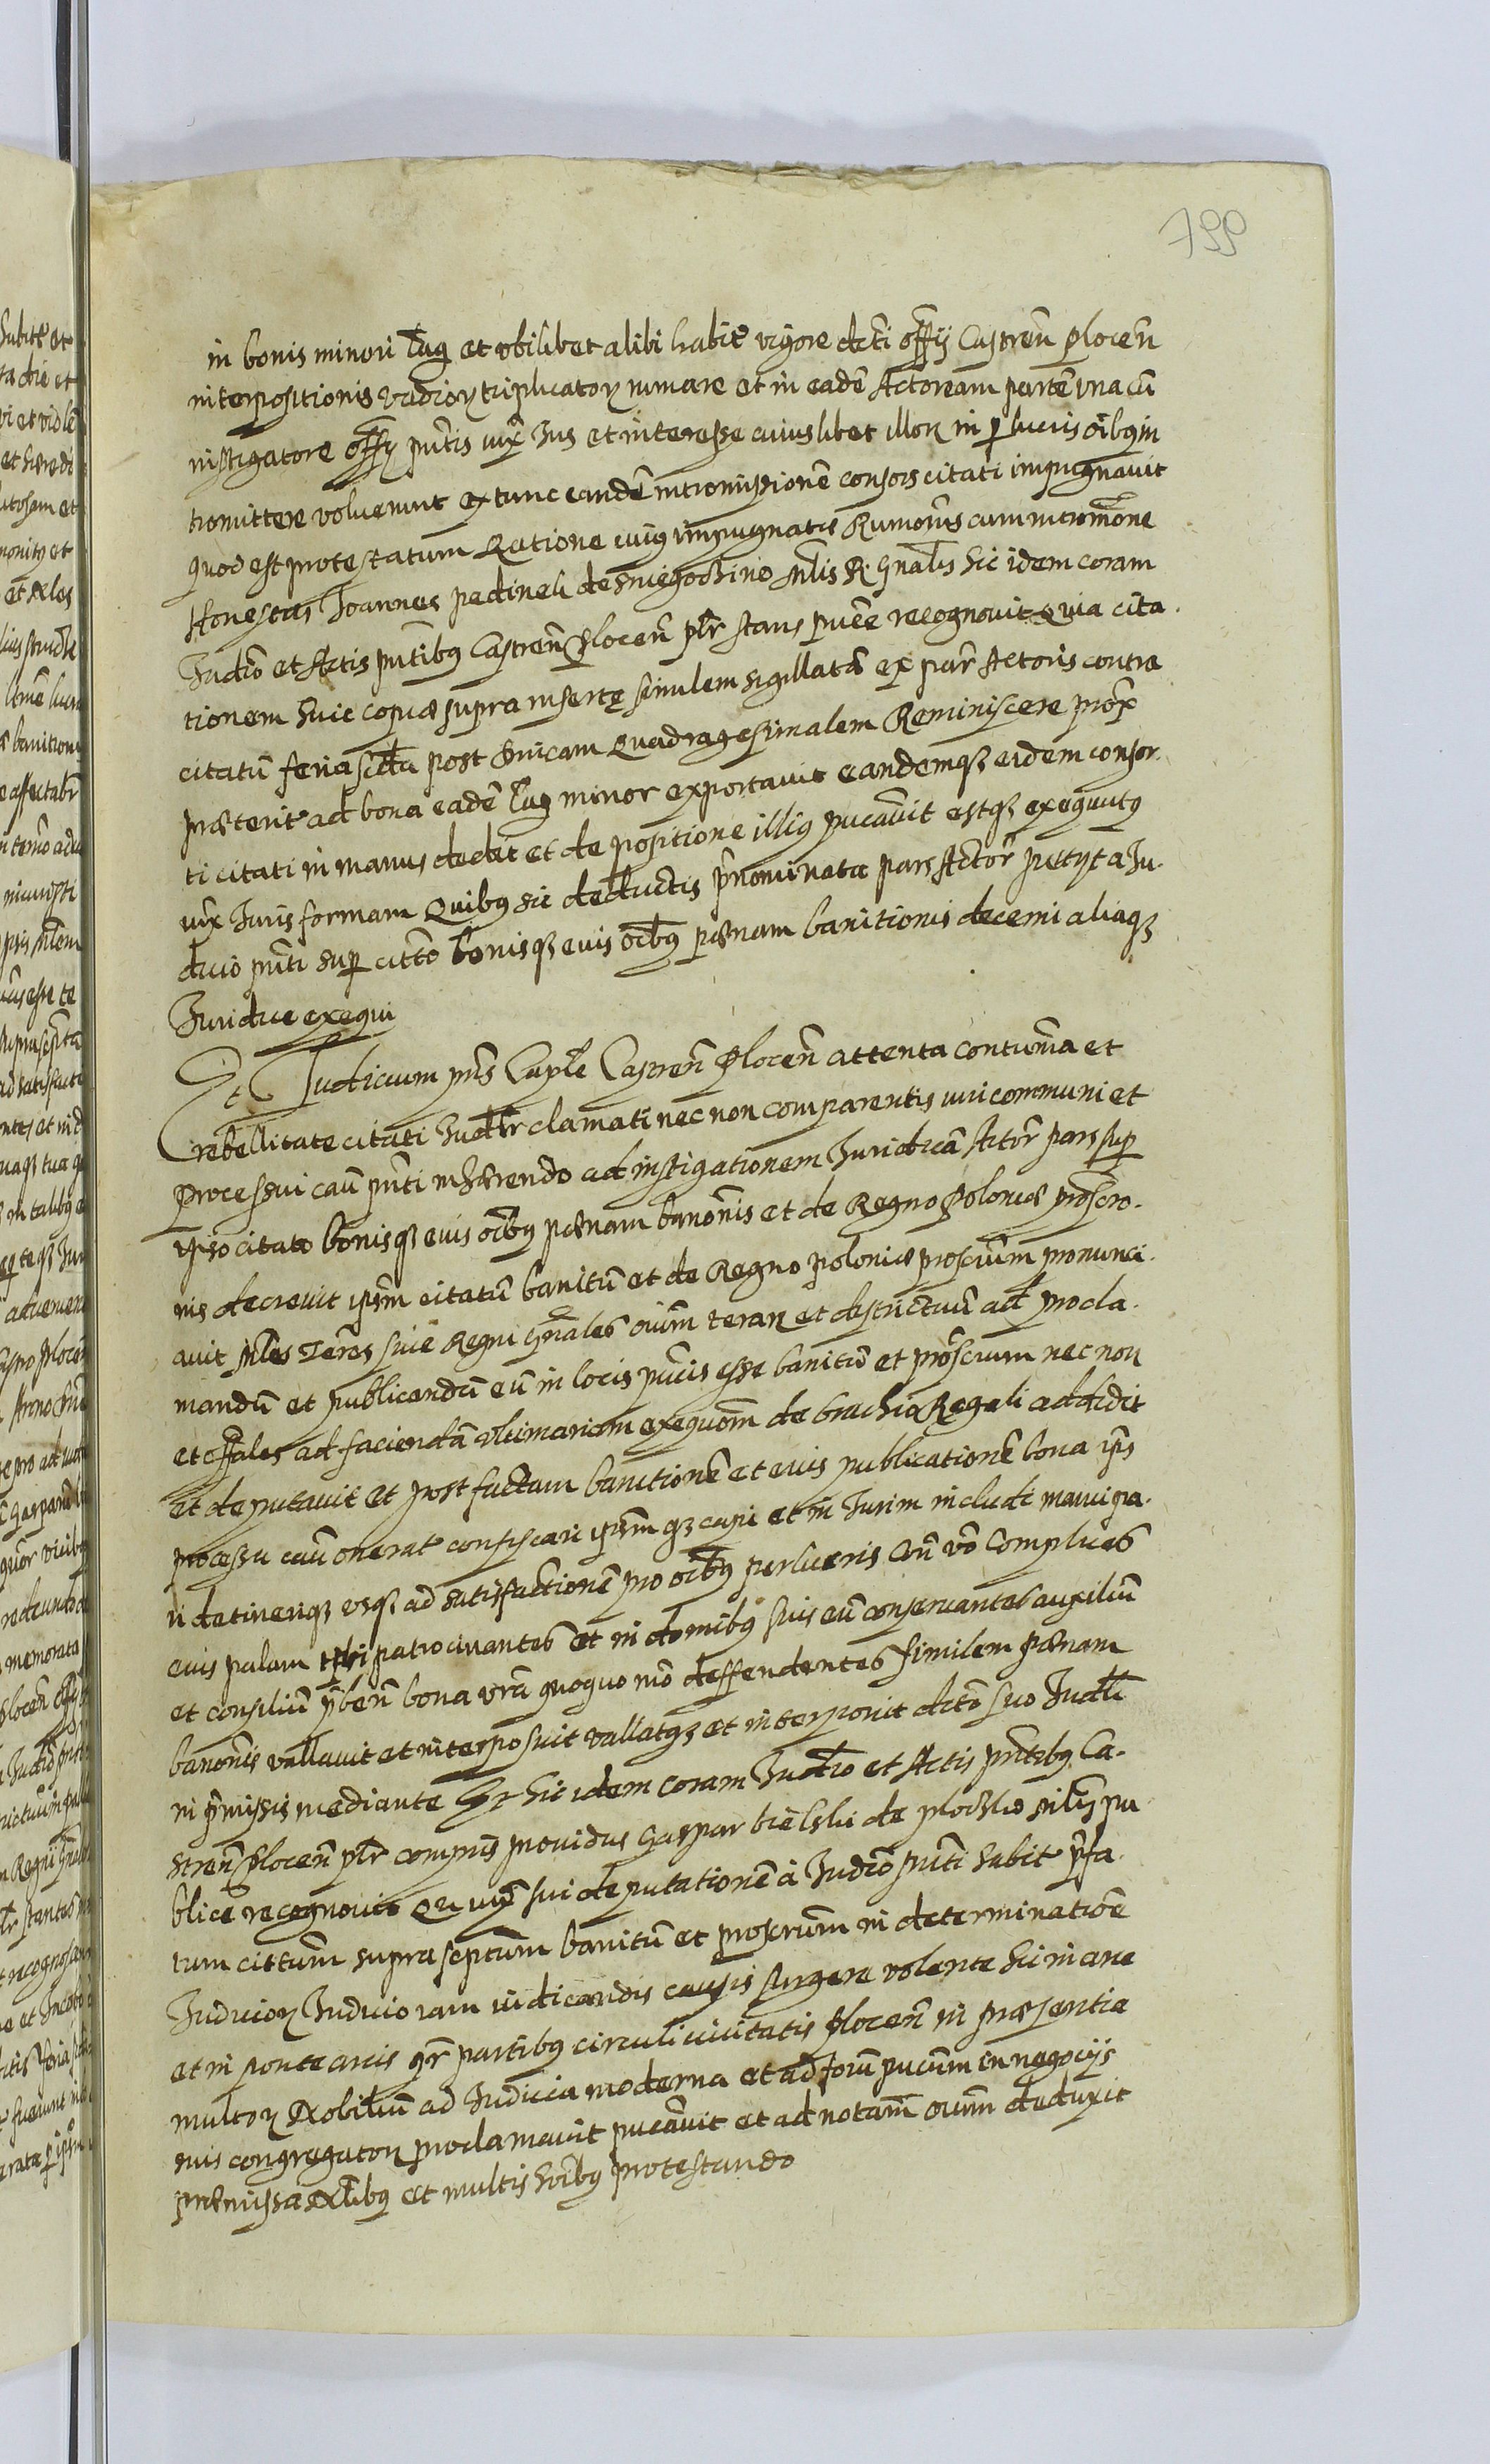 799
in bonis minori Ług et vbilibet alibi habit vigore dicti officij Castren Plocen
interpositionis vadiorz triplicatorz rumare et in eadē Actoream partē vna cū
instigatore offy pntis iuxᵃ Ius et interesse cuiuslibet illorz in p lucris oibq in
tromittere voluerunt extunc eandē intromissionē consors citati impugnauit
quod est protestatum Ratione cuiq impugnatis Rumonis cum intromōne
Honestus Joannes pedinek de Sniegoczino mlis R. Gnalis hic idem coram
Iudio et Actis pntibq Castren Plocen plr stans puce recognouit Quia cita.
tionem huic copiæ supra insertę similem sigillatā ex par Actoris contra
citatū feria scda post Dnicam Quadragesimalem Reminiscere prox
præterit ad bona eadē Ług minor exportauit eandemqz eidem consor.
ti citati in manus dedit et de positione illiq pucauit estqz exequutq
iuxᵃ Iuris formam Quibq sic deductis pnominata pars Actor petyt a Iu.
dicio pnti sup citto bonisqz euis oibq pænam banitionis decerni aliaqz
Iuridice exequi
Et Iudicium pns Caple Castren Plocen attenta contuma et
rebellitate citati Iudlr clamati nec non comparentis iuri communi et
Processui cau pnti inhærendo ad instigationem Iuridicā Actor pars sup
ipso citato bonisqz euis oibq pænam banonis et de Regno Poloniæ proscro.
nis decreuit ipsm citatū banitū et de Regno poloniæ proscrium pronunci.
auit Mles Teres siue Regni Gnales oium terarz et districtuū ad procla.
mandū et publicandū eū in locis pucis esse banitū et proscrium nec non
et offales ad faciendā vltimariam exequom de brachio Regali addidit
et deputauit et post factam banitionē et euis publicationē bona ips
processu cau onerat confiscari ipsm qz capi et in Turim includi mancipa.
ri detineriqz vsqz ad satisfactionē pro oibq perlucris Oñ vō Complices
euis palam ipsi patrocinantes et in domibq suis eū conseruantes auxiliū
et consiliū pben bona vra quoquo mō deffendentes similem pænam
banonis vallauit et interposuit vallatqz et interponit dicto suo Iudli
in pmissis mediante Et hic idem coram Iudio et Actis pntibq Ca.
stren Plocen plr compns prouidus Gaspar bielski de plocsko mls pu
blicē recognouit Qu iuxᵃ sui deputationē à Iudiō pnti habit pfa.
tum cittum supra sceptum banitū et proscrum in determinatiōe
Iudiciorz Iudicio iam iudicandis causis surgere volente hic in arce
et in ponte arcis qr partibq circuli ciuitatis Plocen in præsentia
multorz Nobiliū ad Iudicia moderna et ad forū pucum in negocijs
suis congregatorz proclamauit pucauit et ad notam oium deduxit
præmissa Nlibq et multis hoibq protestando